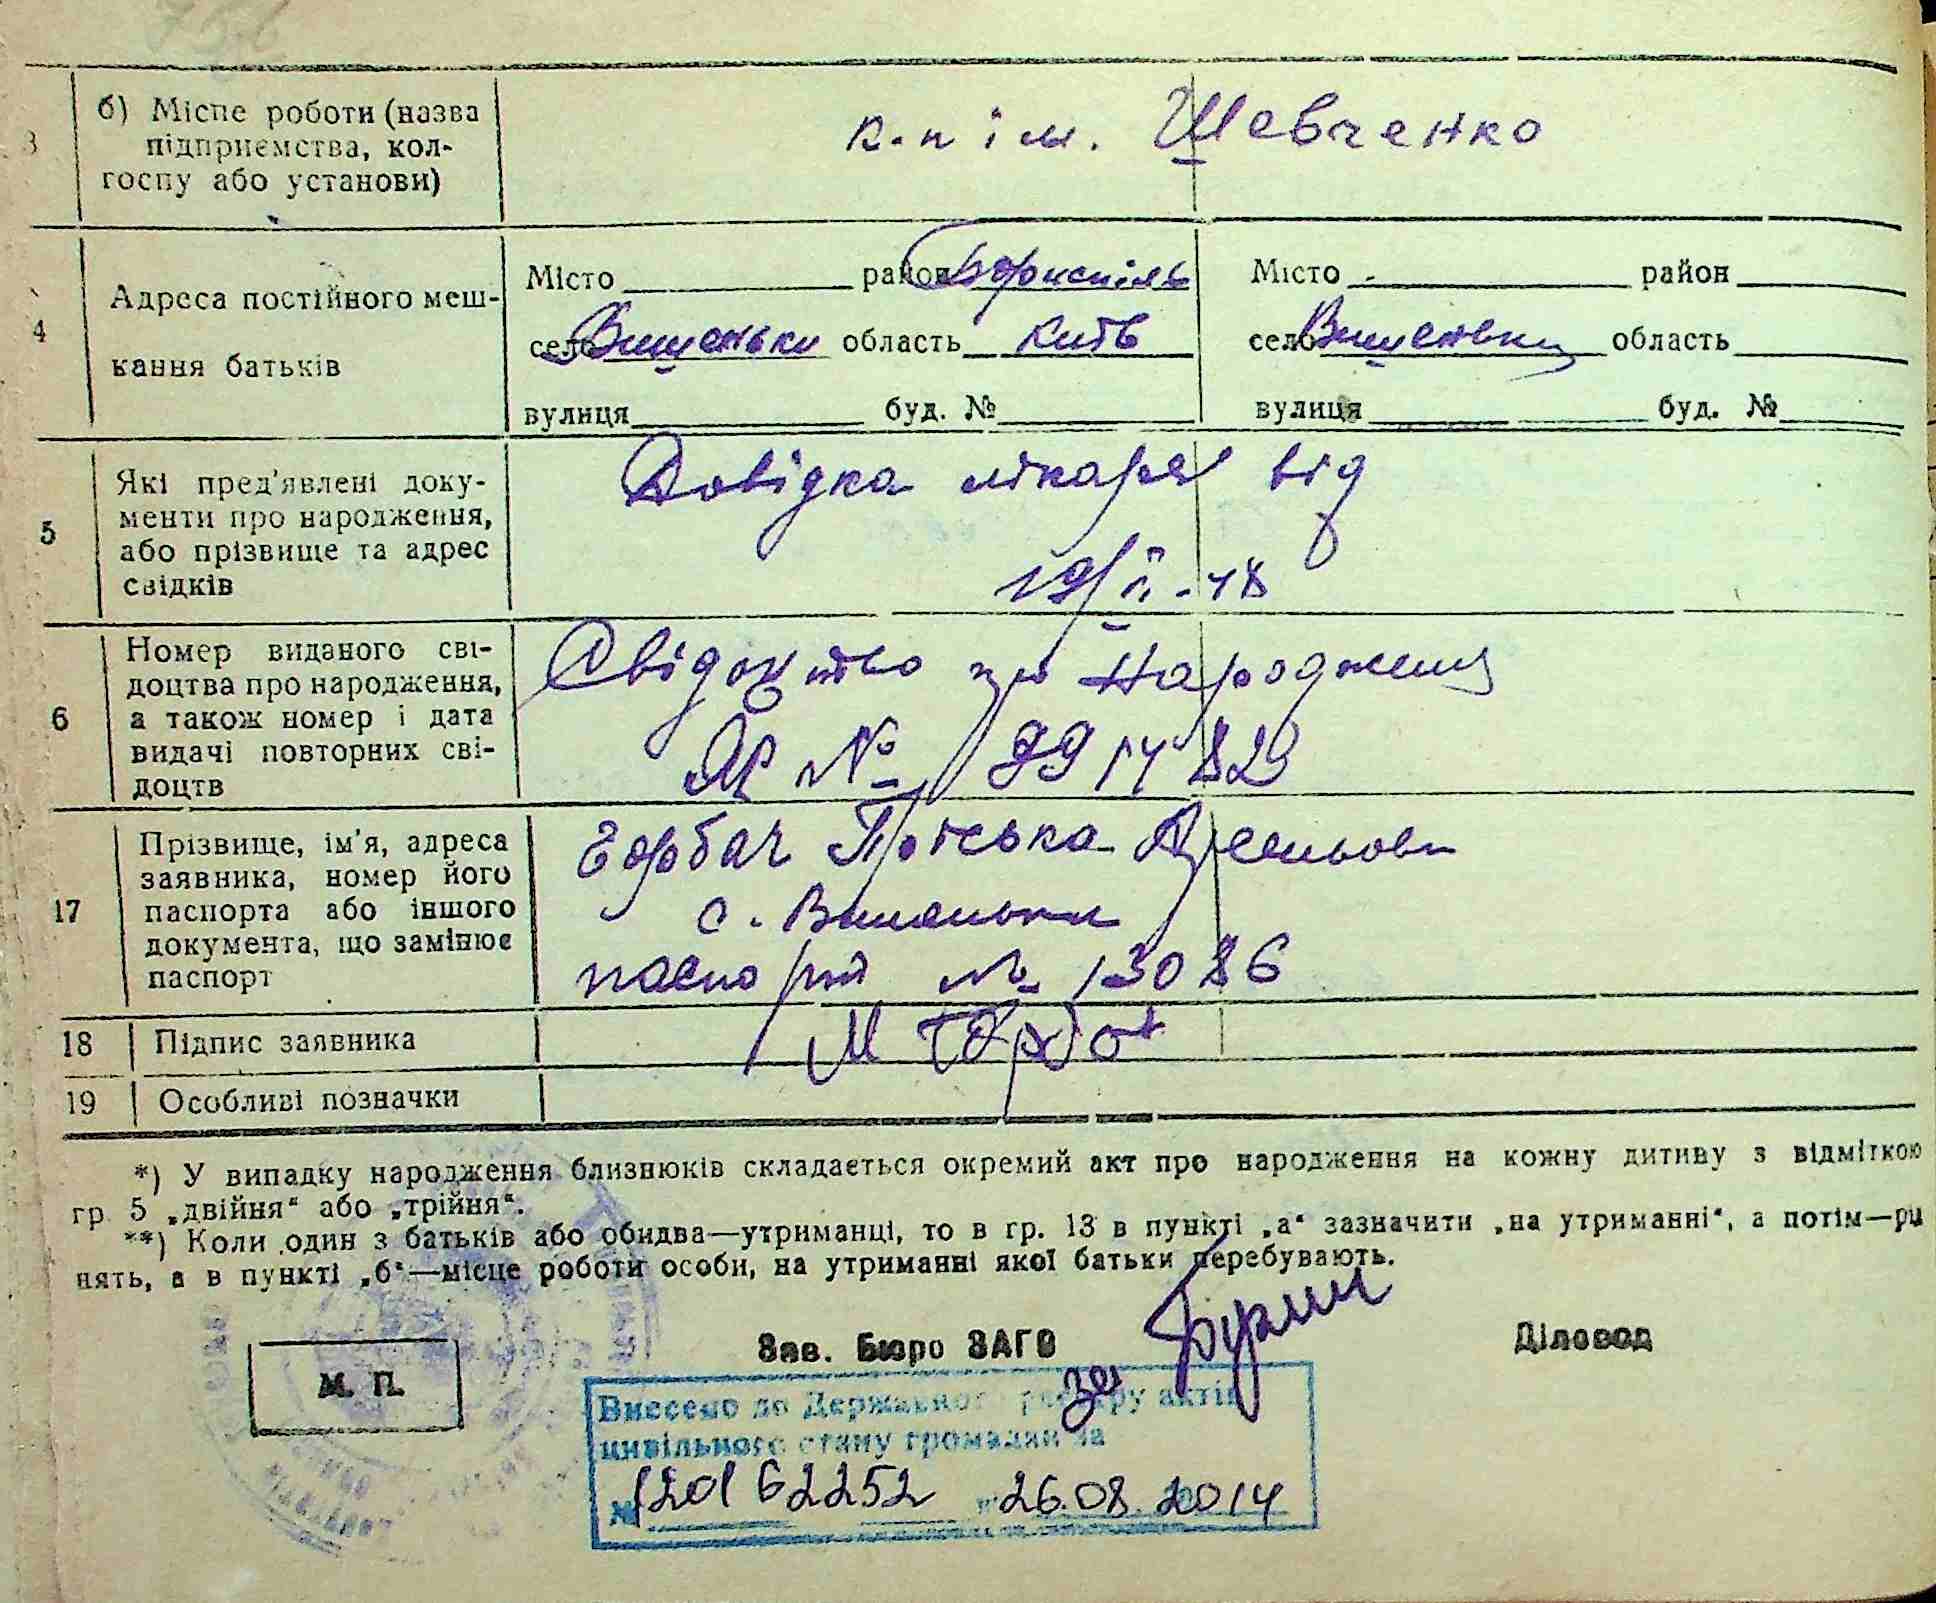 б) Місце роботи (назва підприємства, колгоспу або установи)
к-п ім. Шевченко
4
Адреса постійного мешкання батьків
Місто район Бориспіль
село Вишеньки область Київ
вулиця буд. №
Місто район
село Вишеньки область
вулиця буд. №
5
Які пред'явлені документи про народження, або прізвище та адрес свідків
Довідка лікаря від
19/II-48
6
Номер виданого свідоцтва про народження, а також номер і дата видачі повторних свідоцтв
Свідоцтво про народження
ЯР № 9914829
17
Прізвище, ім'я, адреса заявника, номер його паспорта або іншого документа, що замінює паспорт
Горбач
с. Вишеньки
паспорт № 13086
18 Підпис заявника
19 Особливі позначки
*) У випадку народження близнюків складається окремий акт про народження на кожну дитину з відміткою
гр. 5 „двійня“ або „трійня“.
**) Коли один з батьків або обидва—утриманці, то в гр. 13 в пункті „а“ зазначити „на утриманні“, а потім—ри
нять, а в пункті „б“—місце роботи особи, на утриманні якої батьки перебувають.
Зав. Бюро ЗАГС
за
Діловод
М. П.
Внесено до Державного реєстру актів
цивільного стану громадян за
№ 120162252 26.08.2014